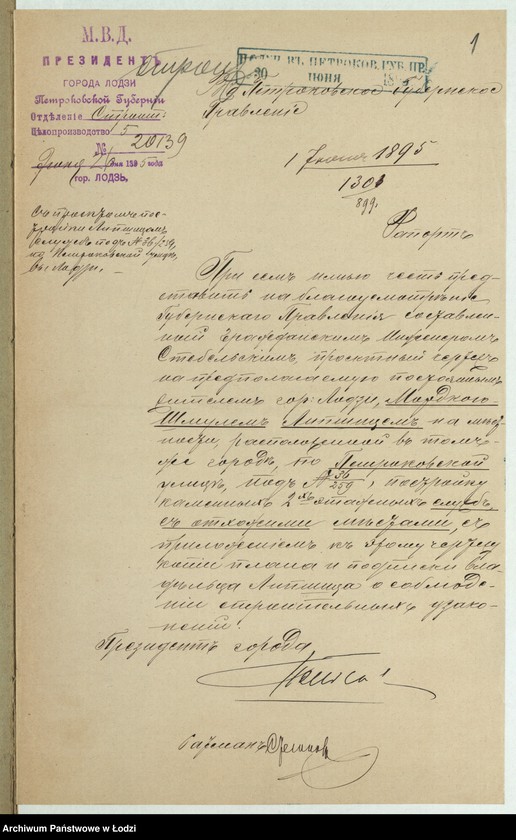 1
М.В.Д.
ПРЕЗИДЕНТЪ
ГОРОДА ЛОДЗИ
Петроковской Губерніи
Отдѣленіе Строит.
Дѣлопроизводство 5
№ 20139
1895 года
гор. ЛОДЗЬ.
ПОЛУЧ. ВЪ ПЕТРОКОВ. ГУБ. ПР.
20 ІЮНЯ 1895
Въ Петроковское Губернское
Правленіе
1895
1301
899
Рапортъ
Съ проектомъ пос-
тройки Липшицомъ
службъ подъ № 36/259,
по Петроковской улицѣ,
въ г. Лодзи.
При семъ имѣю честь пред-
ставить на благоусмотрѣніе
Губернскаго Правленія составлен-
ный Гражданскимъ Инженеромъ
Стебельскимъ, проектный чертежъ
на предполагаемую постояннымъ
жителемъ гор. Лодзи,
Шмулемъ Липшицемъ на мѣст-
ности, расположенной въ томъ-
же городѣ, по Петроковской
улицѣ, подъ № 36/259, постройку
каменныхъ 2хъ этажныхъ службъ,
съ отхожими мѣстами, съ
приложеніемъ къ этому чертежу
копіи плана и подписки вла-
дѣльца Липшица о соблюде-
ніи строительныхъ узако-
неній.
Президентъ города
Archiwum Państwowe w Łodzi